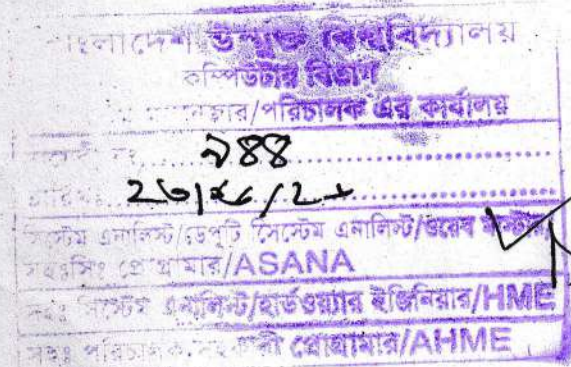 বাংলাদেশ উন্মুক্ত বিশ্ববিদ্যালয়
কম্পিউটার বিভাগ
/পরিচালক এর কার্যালয়
৯৪৪
সিস্টেম এনালিস্ট/ডেপুটি সিস্টেম এনালিস্ট/ওয়েব মাস্টার/
প্রোগ্রামার/ASANA
সিস্টেম এনালিস্ট/হার্ডওয়্যার ইঞ্জিনিয়ার/HME
সহঃ পরিচালক, সহকারী প্রোগ্রামার/AHME